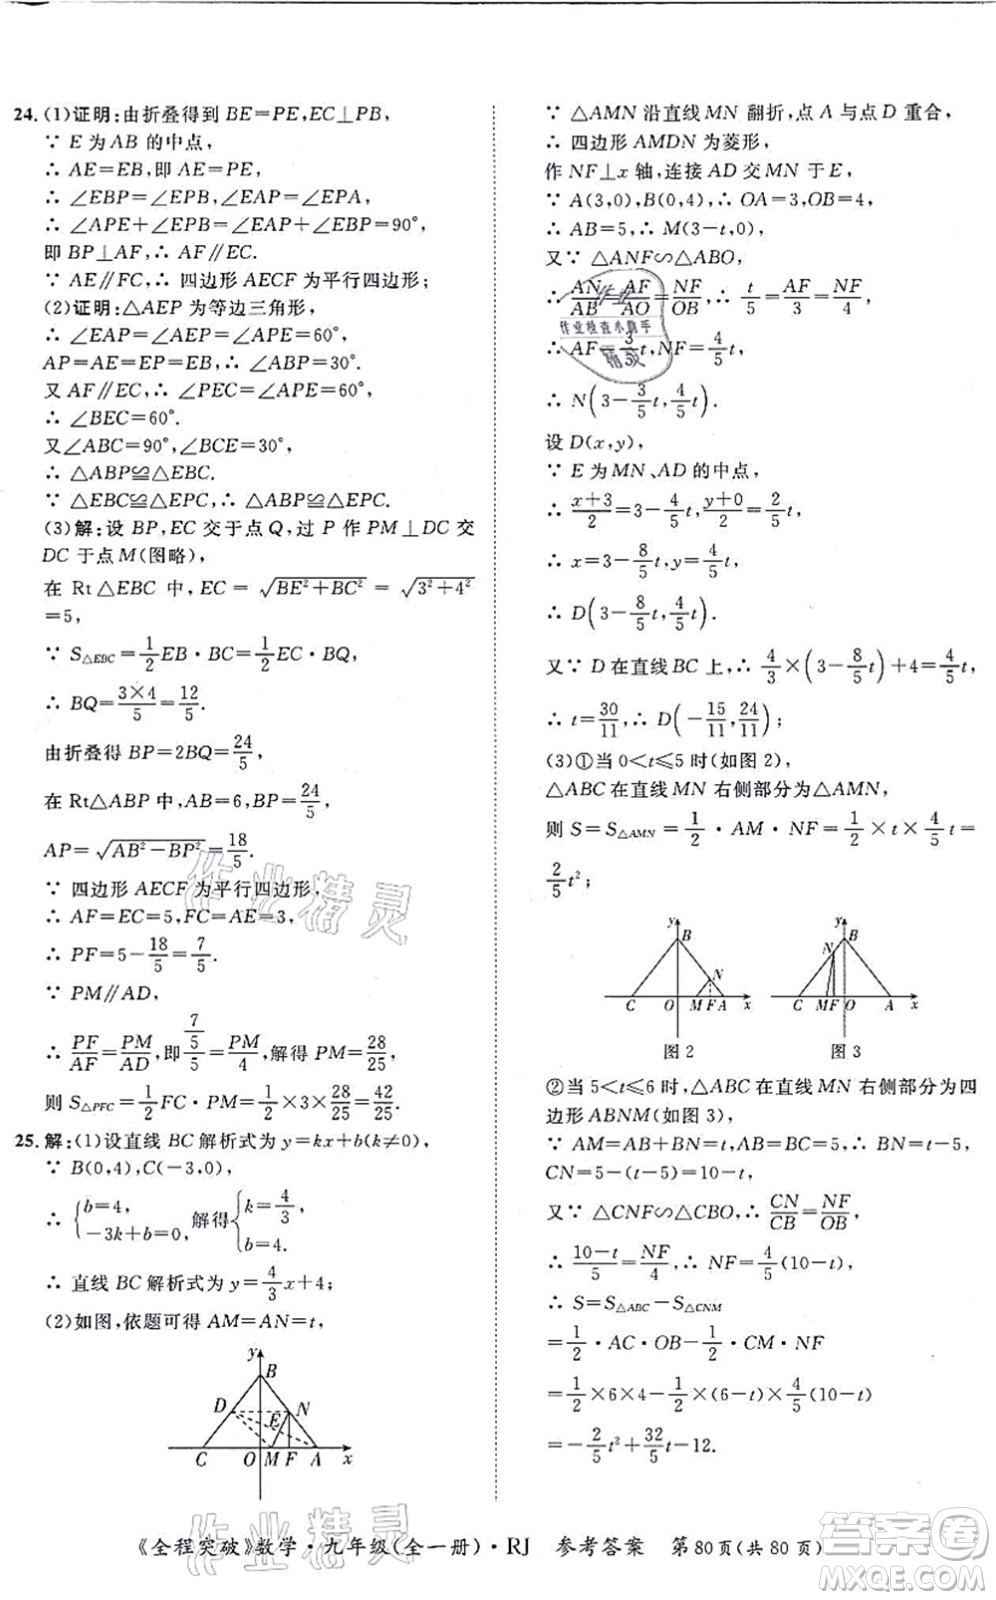 24. (1)证明:由折叠得到 BE=PE,EC⊥PB,
∵ E 为 AB 的中点,
∴ AE=EB,即 AE=PE,
∴ ∠EBP=∠EPB,∠EAP=∠EPA,
∴ ∠APE+∠EPB=∠EAP+∠EBP=90°,
即 BP⊥AF,∴ AF∥EC.
∵ AE∥FC,∴ 四边形 AECF 为平行四边形;
(2)证明:△AEP 为等边三角形,
∴ ∠EAP=∠AEP=∠APE=60°,
AP=AE=EP=BE,∴ ∠ABP=30°.
又 AF∥EC,∴ ∠EAP=∠BEC,
∴ ∠BEC=60°.
又∠ABC=90°,∠BCE=30°.
∴ △ABP≌△EBC.
∵ △EBC≌△EPC,∴ △ABP≌△EPC.
(3)解:设 BP,EC 交于点 Q,过 P 作 PM⊥DC 交
DC 于点 M(图略),
在 Rt△EBC 中,EC=√(BE²+BC²)=√(3²+4²)
=5,
∵ S△EBC=1/2 EB·BC=1/2 EC·BQ,
∴ BQ=(3×4)/5=12/5.
由折叠得 BP=2BQ=24/5,
在 Rt△ABP 中,AB=6,BP=24/5,
AP=√(AB²-BP²)=18/5.
∵ 四边形 AECF 为平行四边形,
∴ AF=EC=5,FC=AE=3,
∴ PF=5-18/5=7/5.
∵ PM∥AD,
∴ PF/AF=PM/AD,即(7/5)/5=PM/4,解得 PM=28/25,
则 S△PFC=1/2 FC·PM=1/2×3×28/25=42/25.
25. 解:(1)设直线 BC 解析式为 y=kx+b(k≠0),
∵ B(0,4),C(-3,0),
∴ {b=4, -3k+b=0, 解得{k=4/3, b=4.
∴ 直线 BC 解析式为 y=4/3 x+4;
(2)如图,依题可得 AM=AN=t,
y
B
D E N
C O M F A x
∵ △AMN 沿直线 MN 翻折,点 A 与点 D 重合,
∴ 四边形 AMDN 为菱形,
作 NF⊥x 轴,连接 AD 交 MN 于 E,
∵ A(3,0),B(0,4),∴ OA=3,OB=4,
∴ AB=5,∴ M(3-t,0),
又∵ △ANF∽△ABO,
∴ AN/AB=AF/AO=NF/OB,∴ t/5=AF/3=NF/4,
∴ AF=3/5 t,NF=4/5 t,
∴ N(3-3/5 t,4/5 t).
设 D(x,y),
∵ E 为 MN、AD 的中点,
∴ (x+3)/2=3-4/5 t,(y+0)/2=2/5 t,
∴ x=3-8/5 t,y=4/5 t,
∴ D(3-8/5 t,4/5 t).
又∵ D 在直线 BC 上,∴ 4/3×(3-8/5 t)+4=4/5 t,
∴ t=30/11,∴ D(-15/11,24/11);
(3)①当 0<t≤5 时(如图 2),
△ABC 在直线 MN 右侧部分为△AMN,
则 S=S△AMN=1/2·AM·NF=1/2×t×4/5 t=
2/5 t²;
y
B
N
C O M F A x
图 2
y
B
N
C M F O A x
图 3
②当 5<t≤6 时,△ABC 在直线 MN 右侧部分为四
边形 ABNM(如图 3),
∵ AM=AB+BN=t,AB=BC=5,∴ BN=t-5,
CN=5-(t-5)=10-t,
又∵ △CNF∽△CBO,∴ CN/CB=NF/OB,
∴ (10-t)/5=NF/4,∴ NF=4/5(10-t),
∴ S=S△ABC-S△CNM
=1/2·AC·OB-1/2·CM·NF
=1/2×6×4-1/2(6-t)×4/5(10-t)
=-2/5 t²+32/5 t-12.
《全程突破》数学·九年级(全一册)·RJ 参考答案 第 80 页(共 80 页)
作业检查小助手
作业精灵
作业精灵
答案圈
MXQE.COM